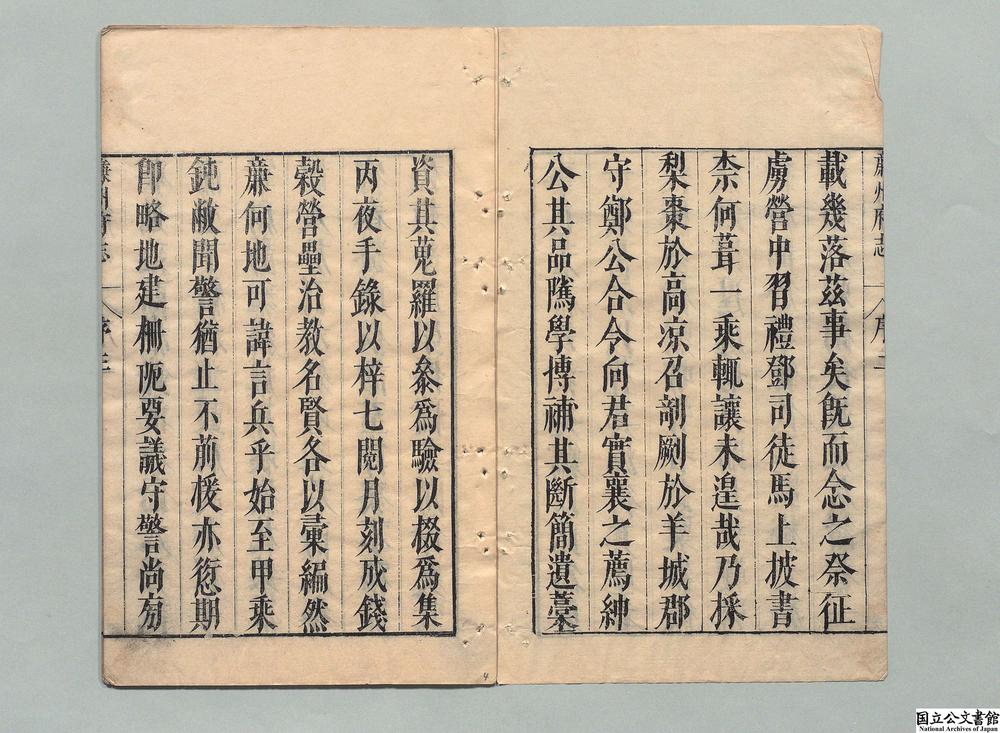 廉州府志
序二
載幾落茲事矣旣而念之祭征
虜營中習禮鄧司徒馬上披書
柰何葺一乘輒讓未遑哉乃採
梨棗於高凉召剞劂於羊城郡
守鄭公合令向君實襄之薦紳
公其品隲學博補其斷簡遺藁
資其蒐羅以叅爲驗以棳爲集
丙夜手錄以梓七閱月刻成錢
榖營壘治教名賢各以彙編然
亷何地可諱言兵乎始至甲乘
鈍敝聞警猶止不前援亦愆期
卽略地建柵阨要議守警尚夯
廉州府志
序三
4
国立公文書館
National Archives of Japan